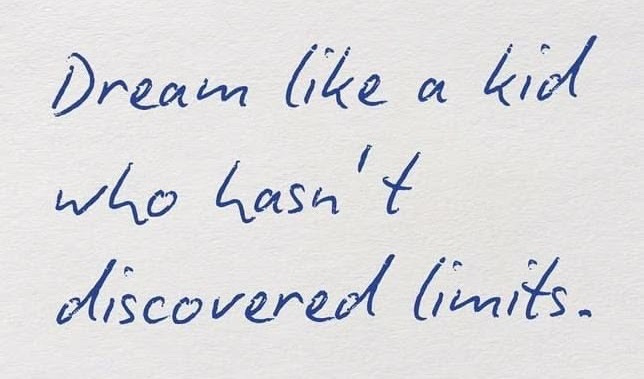 Dream like a kid
who hasn't
discovered limits.